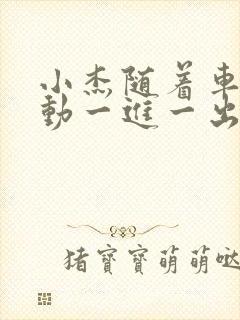 小杰随着車
動一進一出
猪寶寶萌萌噠